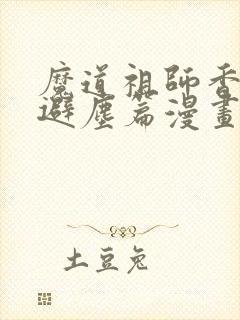 魔道祖師香
避塵篇漫畫
土豆兔